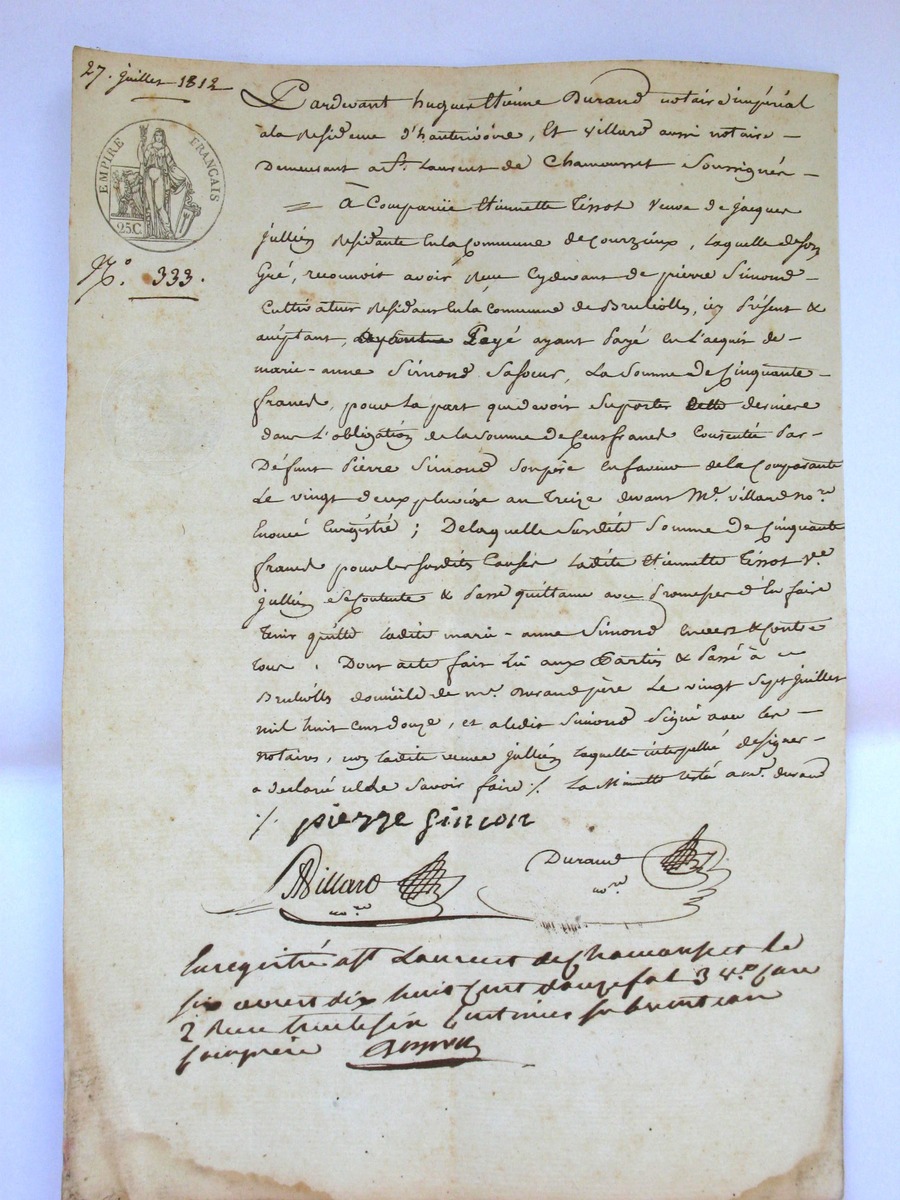 27. juillet 1812
EMPIRE FRANÇAIS
25C
N.° 333.
Pardevant hugues Etienne Durand notaire impérial
ala Résidence d'hauterivoire, Et Villard aussi notaire –
Demeurant a St. Laurent de Chamousset Soussignés –
= À Comparüe Etiennette Tissot Veuve de jacques
jullien Résidante En la Commune de Courzieux, laquelle de son
Gré, reconnoit avoir Reçu Cydevant de pierre Simond –
Cultivateur Résidant En la Commune de Bruliolles, icy Présent &
acéptant, Payé ayant Payé En l'acquit de –
marie-anne Simond Sa Soeur, La Somme de Cinquante –
francs, pour La part que devoit Suporter Cette derniere
dans L'obligation de la Somme de Cent francs Consentie Par –
Défunt Pierre Simond Son père En faveur de la Comparante
Le vingt deux pluviose an Treize devant Me. Villard nore.
Enoncé Enregistré ; De laquelle Surdité Somme de Cinquante
francs pour les susdits Causes Ladite Etiennette Tissot Ve.
jullien Se Contente & Passe quittance avec Promesse d'En faire
Tenir quitte Ladite marie-anne Simond Envers & Contre
tous. Dont acte fait Lu aux Parties & Passé à
Brulolles domicile de mr. Durand père Le vingt Sept juillet
mil huit Cent douze, et a ledit Simond Signé avec les –
notaires, non Ladite veuve jullien Laquelle interpellée de signer –
a déclaré ne le Savoir faire ./. La Minutte restée a mr. durand
./. pierre simon
Villard nore
Durand nore
Enregistré a St Laurent de Chamousset le
six aoust dix huit Cent douze fol 3 vo. Case
2 Reçu trente six Centimes subvention
Comprise